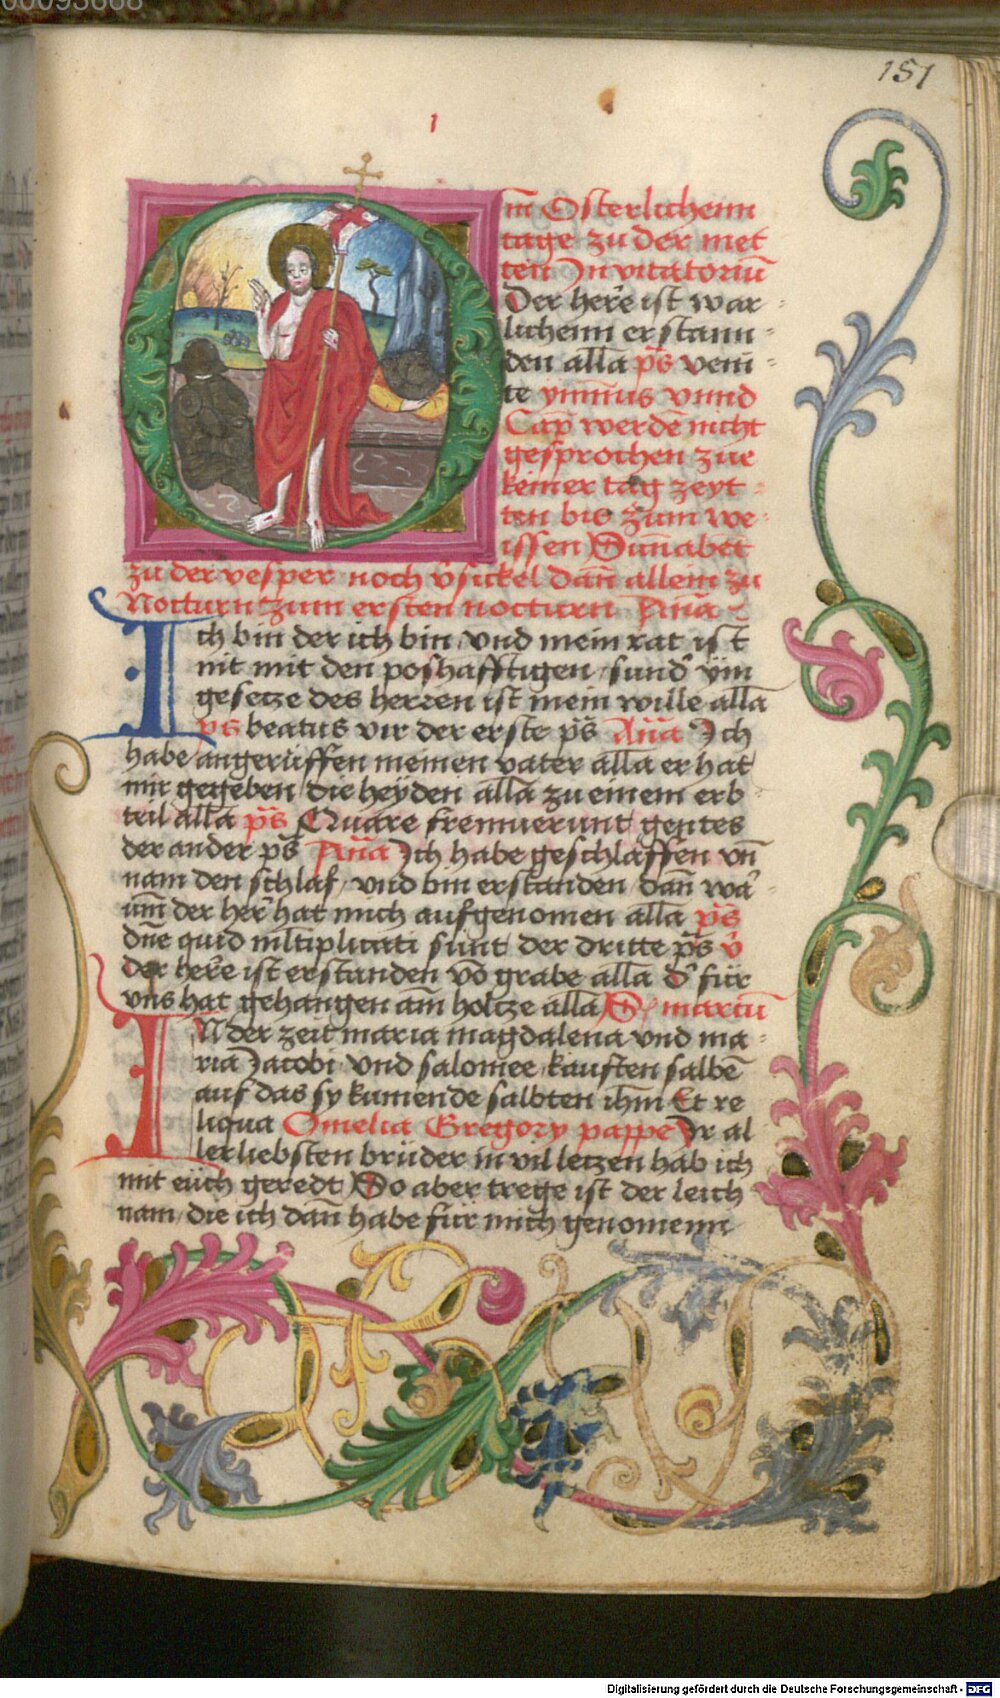 00093668
151
1
m Osterlichenn
tage zu der met
ten Invitatoriū
Der here ist war
lichenn erstann
den alla ps veni
te ymnus vnnd
Cap werdē nicht
gesprochen zue
keiner tag zeyt
ten bis zum we
issen Sunabet
zu der vesper noch v̄sickel dan̄ allein zu
Nocturn zum ersten nocturn An̄a
Ich bin der ich bin vnd mein rat ist
nit mit den poshafftigen sund' ym
gesetze des herren ist mein wille alla
ps beatus vir der erste ps An̄a Ich
habe angerüffen meinen vater alla er hat
mir gegeben die heyden alla zu einem erb
teil alla ps Quare fremuerunt gentes
der ander ps An̄a Ich habe geschlaffen vn̄
nam den schlaf vnd bin erstanden dan̄ wa
um̄ der her hat mich aufgenomen alla ps
dn̄e quid mltiplicati sunt der dritte ps v̄
der here ist erstanden vō grabe alla d' für
vns hat gehangen am holtze alla S. marcū
IN der zeit maria magdalena vnd ma
ria Jacobi vnd salomee kauften salbē
auf das sy kumende salbten ihm Et re
liqua Omelia Gregory pappe Ir al
lerliebsten brüder in vil letzen hab ich
mit eüch geredt So aber trege ist der leich
nam die ich dan̄ habe für mich genomenn
Digitalisierung gefördert durch die Deutsche Forschungsgemeinschaft - DFG